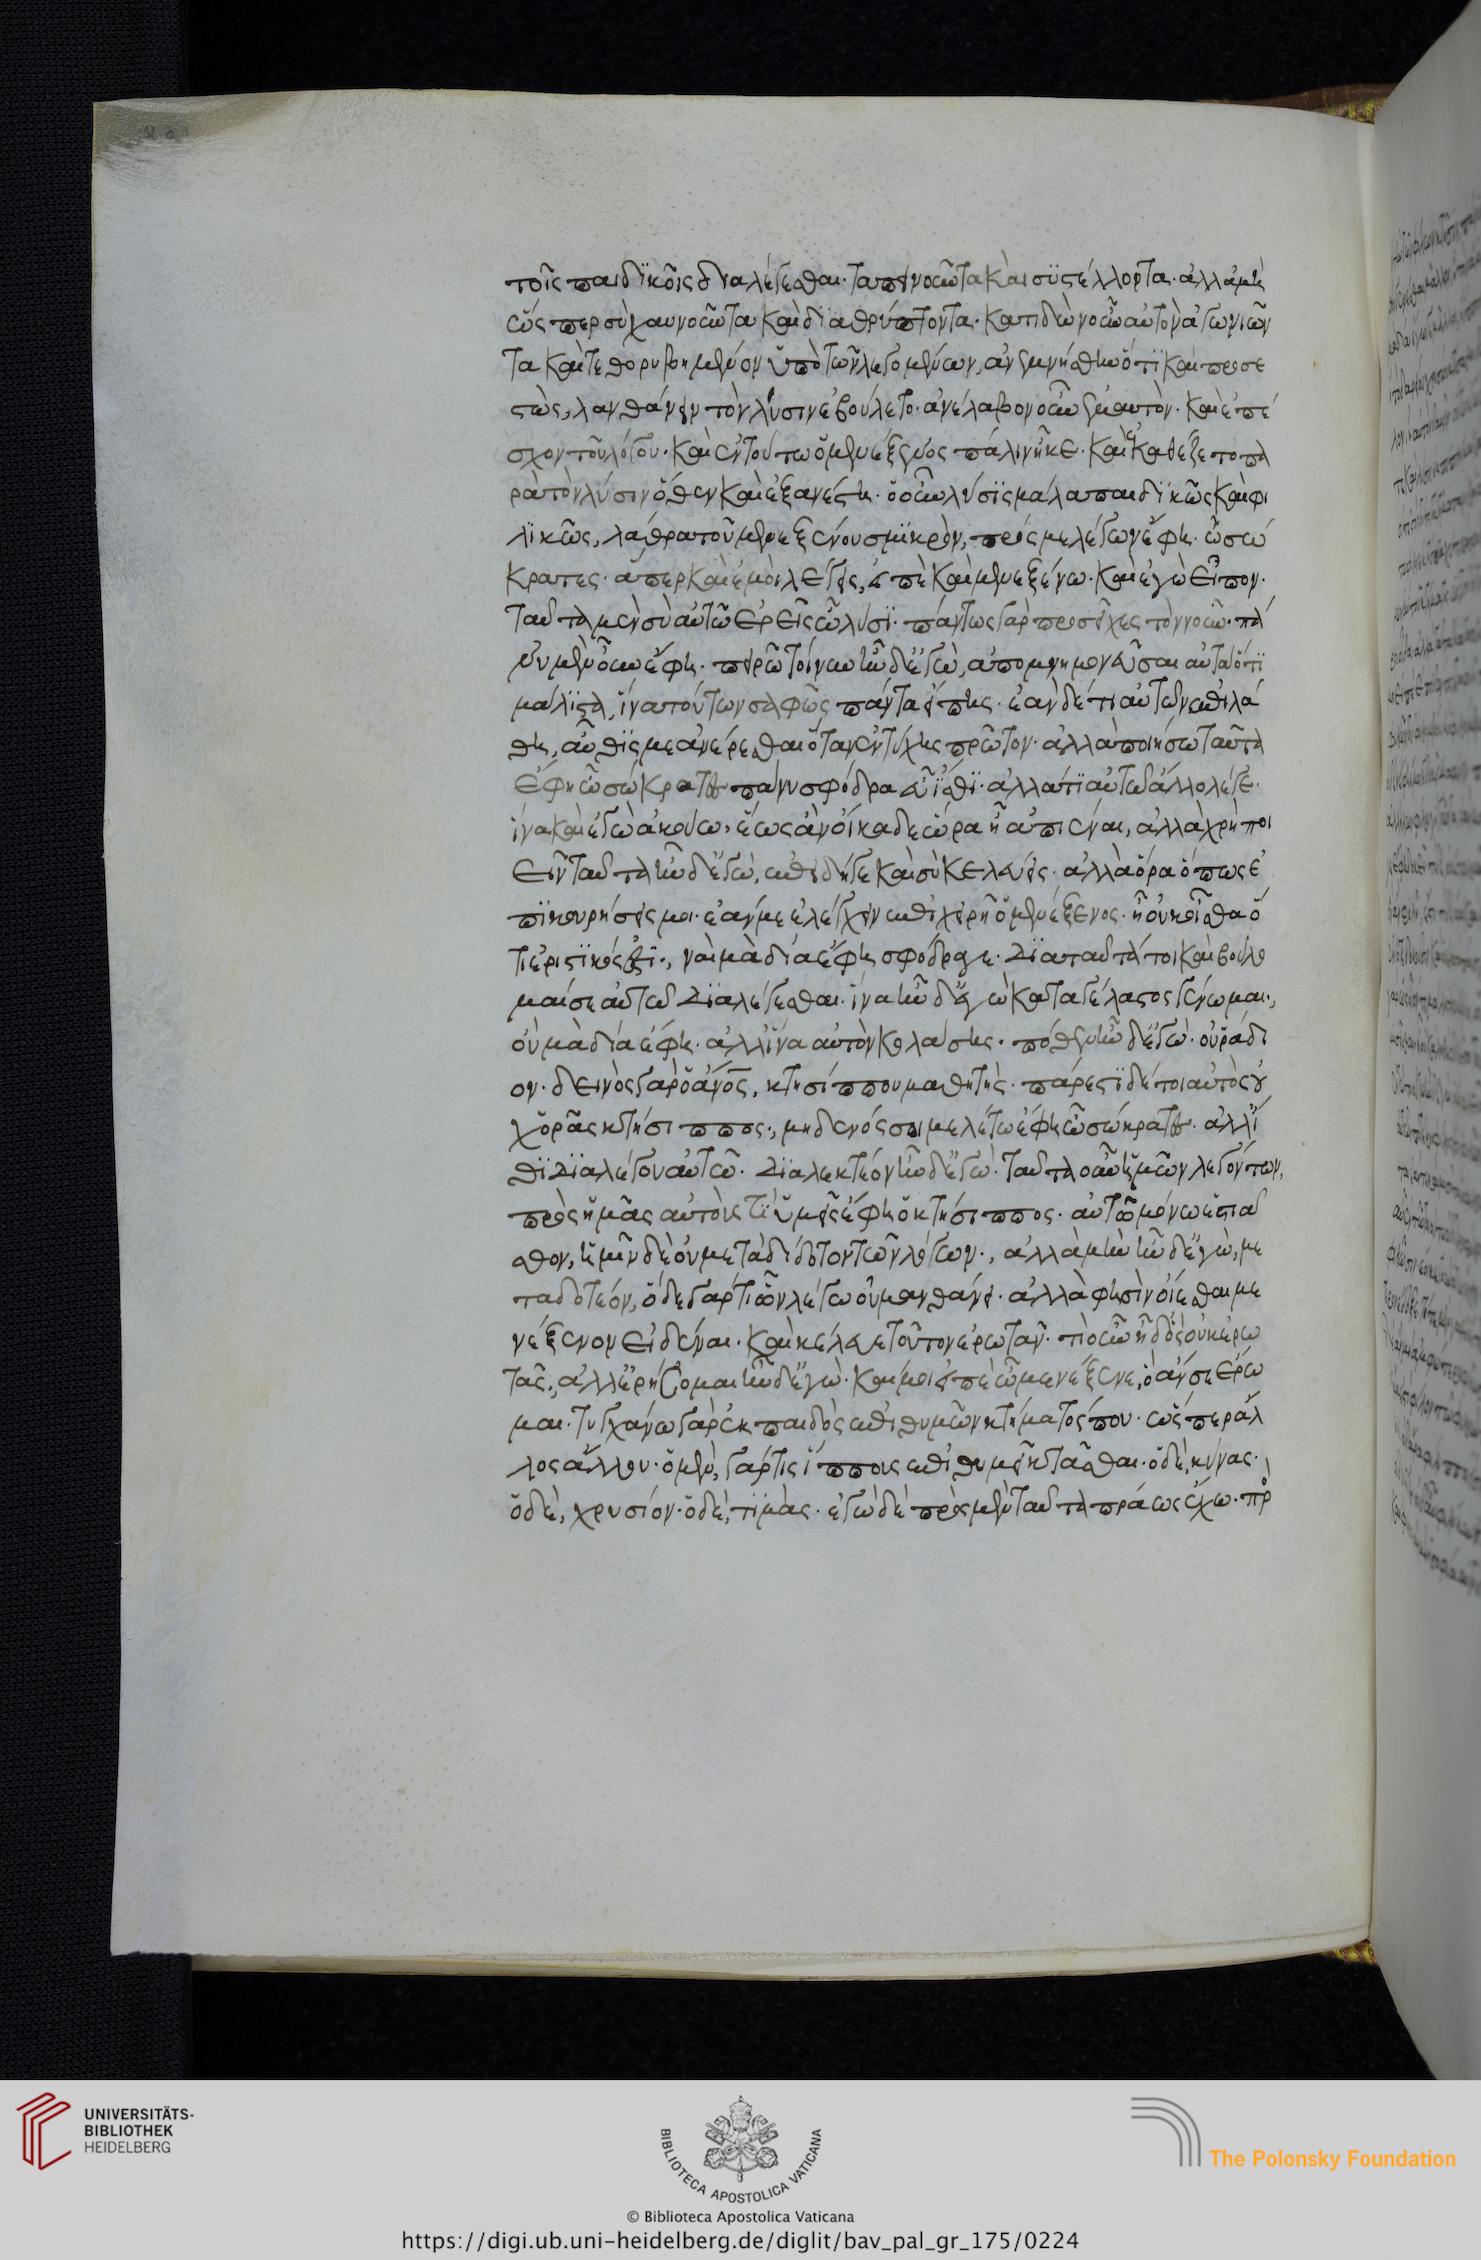 τοῖς παιδϊκοῖς διαλέγεσθαι· ταπεινοῦντα καὶ συστέλλοντα· ἀλλὰ μὴ
ὥσπερ σὺ χαυνοῦντα καὶ διαθρύπτοντα· κατιδὼν οὖν αὐτὸν ἀγωνιῶν
τα καὶ τεθορυβημένον ὑπὸ τῶν λεγομένων, ἀνεμνήσθην ὅτι καὶ προσε
στὼς, λανθάνειν τὸν λύσιν ἐβούλετο· ἀνέλαβον οὖν ἐμαυτὸν· καὶ ἐπέ
σχον τοῦ λόγου· καὶ ἐν τούτω ὁ μενέξενος πάλιν ἧκε· καὶ ἐκαθέζετο πα
ρὰ τὸν λύσιν ὅθεν καὶ ἐξανέστη· ὁ οὖν λύσις μάλα παιδικῶς καὶ φι
λϊκῶς, λάθρα τοῦ μενεξένου σμϊκρὸν, πρός με λέγων ἔφη· ὦ σώ
κρατες· ἅπερ καὶ ἐμοὶ λέγεις, εἰπὲ καὶ μενεξένω· καὶ ἐγὼ εἶπον·
ταῦτα μὲν σὺ αὐτῶ ἐρεῖς ὦ λύσϊ· πάντως γὰρ προσεῖχες τὸν νοῦν· πά
νυ μὲν οὖν ἔφη· πειρῶ τοίνυν ἦν δ' ἐγὼ, ἀπομνημονεῦσαι αὐτὰ ὅτϊ
μάλϊστα, ἵνα τούτω σαφῶς πάντα εἴπης· ἐὰν δέ τι αὐτῶν ἐπιλά
θη, αὖθίς με ἀνερέσθαι ὅταν ἐντύχης πρῶτον· ἀλλὰ ποιήσω ταῦτα
ἔφη ὦ σώκρατες πάνυ σφόδρα εὖ ἴσθϊ· ἀλλά τι αὐτῶ ἄλλο λέγε·
ἵνα καὶ ἐγὼ ἀκούω, ἕως ἂν οἴκαδε ὥρα ἦ ἀπιέναι, ἀλλὰ χρὴ ποι
εῖν ταῦτα ἦν δ' ἐγώ, ἐπειδή γε καὶ σὺ κελεύεις· ἀλλὰ ὅρα ὅπως ἐ
πϊκουρήσεις μοι· ἐάν με ἐλέγχειν ἐπιχειρῆ ὁ μενέξενος· ἢ οὐκ οἶσθα ὅ
τι ἐριστϊκός ἐστϊ·, ναὶ μὰ δία ἔφη σφόδρα γε· δϊὰ ταῦτά τοι καὶ βούλο
μαί σε αὐτῶ διαλέγεσθαι· ἵνα ἦν δ' ἐγὼ καταγέλαστος γένωμαι·,
οὐ μὰ δία ἔφη· ἀλλ' ἵνα αὐτὸν κολάσης· πόθεν ἦν δ' ἐγώ· οὐ ῥάδι
ον· δεινὸς γὰρ ὁ ἄνος, κτησίππου μαθητὴς· πάρεστϊ δέ τοι αὐτὸς οὐ
χ ὁρᾶς κτήσιππος·, μηδενός σοι μελέτω ἔφη ὦ σώκρατες· ἀλλ' ἴ
θϊ διαλέγου αὐτῶ· διαλεκτέον ἦν δ' ἐγώ· ταῦτα οὖν ἡμῶν λεγόντων,
πρὸς ἡμᾶς αὐτοὺς τί ὑμεῖς ἔφη ὁ κτήσιππος· αὐτῶ μόνω ἑστιᾶ
σθον, ἡμῖν δὲ οὐ μεταδίδοτον τῶν λόγων·, ἀλλὰ μὴν ἦν δ' ἐγὼ, με
ταδοτέον, ὅδε γάρ τι ὧν λέγω οὐ μανθάνει· ἀλλὰ φησὶν οἴεσθαι με
νέξενον εἰδέναι· καὶ κελεύει τοῦτον ἐρωτᾶν· τί οὖν ἦ δ' ὃς οὐκ ἐρω
τᾶς·, ἀλλ' ἐρήσομαι ἦν δ' ἐγὼ· καί μοι εἰπὲ ὦ μενέξενε, ὃ ἄν σε ἔρω
μαι· τυγχάνω γὰρ ἐκ παιδὸς ἐπιθυμῶν κτήματός που· ὥσπερ ἄλ
λος ἄλλου· ὁ μὲν, γάρ τις ἵππους ἐπιθυμεῖ κτᾶσθαι· ὁ δὲ, κύνας·
ὁ δὲ, χρυσίον· ὁ δὲ, τιμὰς· ἐγὼ δὲ πρὸς μὲν ταῦτα πράως ἔχω· πρ
UNIVERSITÄTS-
BIBLIOTHEK
HEIDELBERG
BIBLIOTECA APOSTOLICA VATICANA
The Polonsky Foundation
© Biblioteca Apostolica Vaticana
https://digi.ub.uni-heidelberg.de/diglit/bav_pal_gr_175/0224